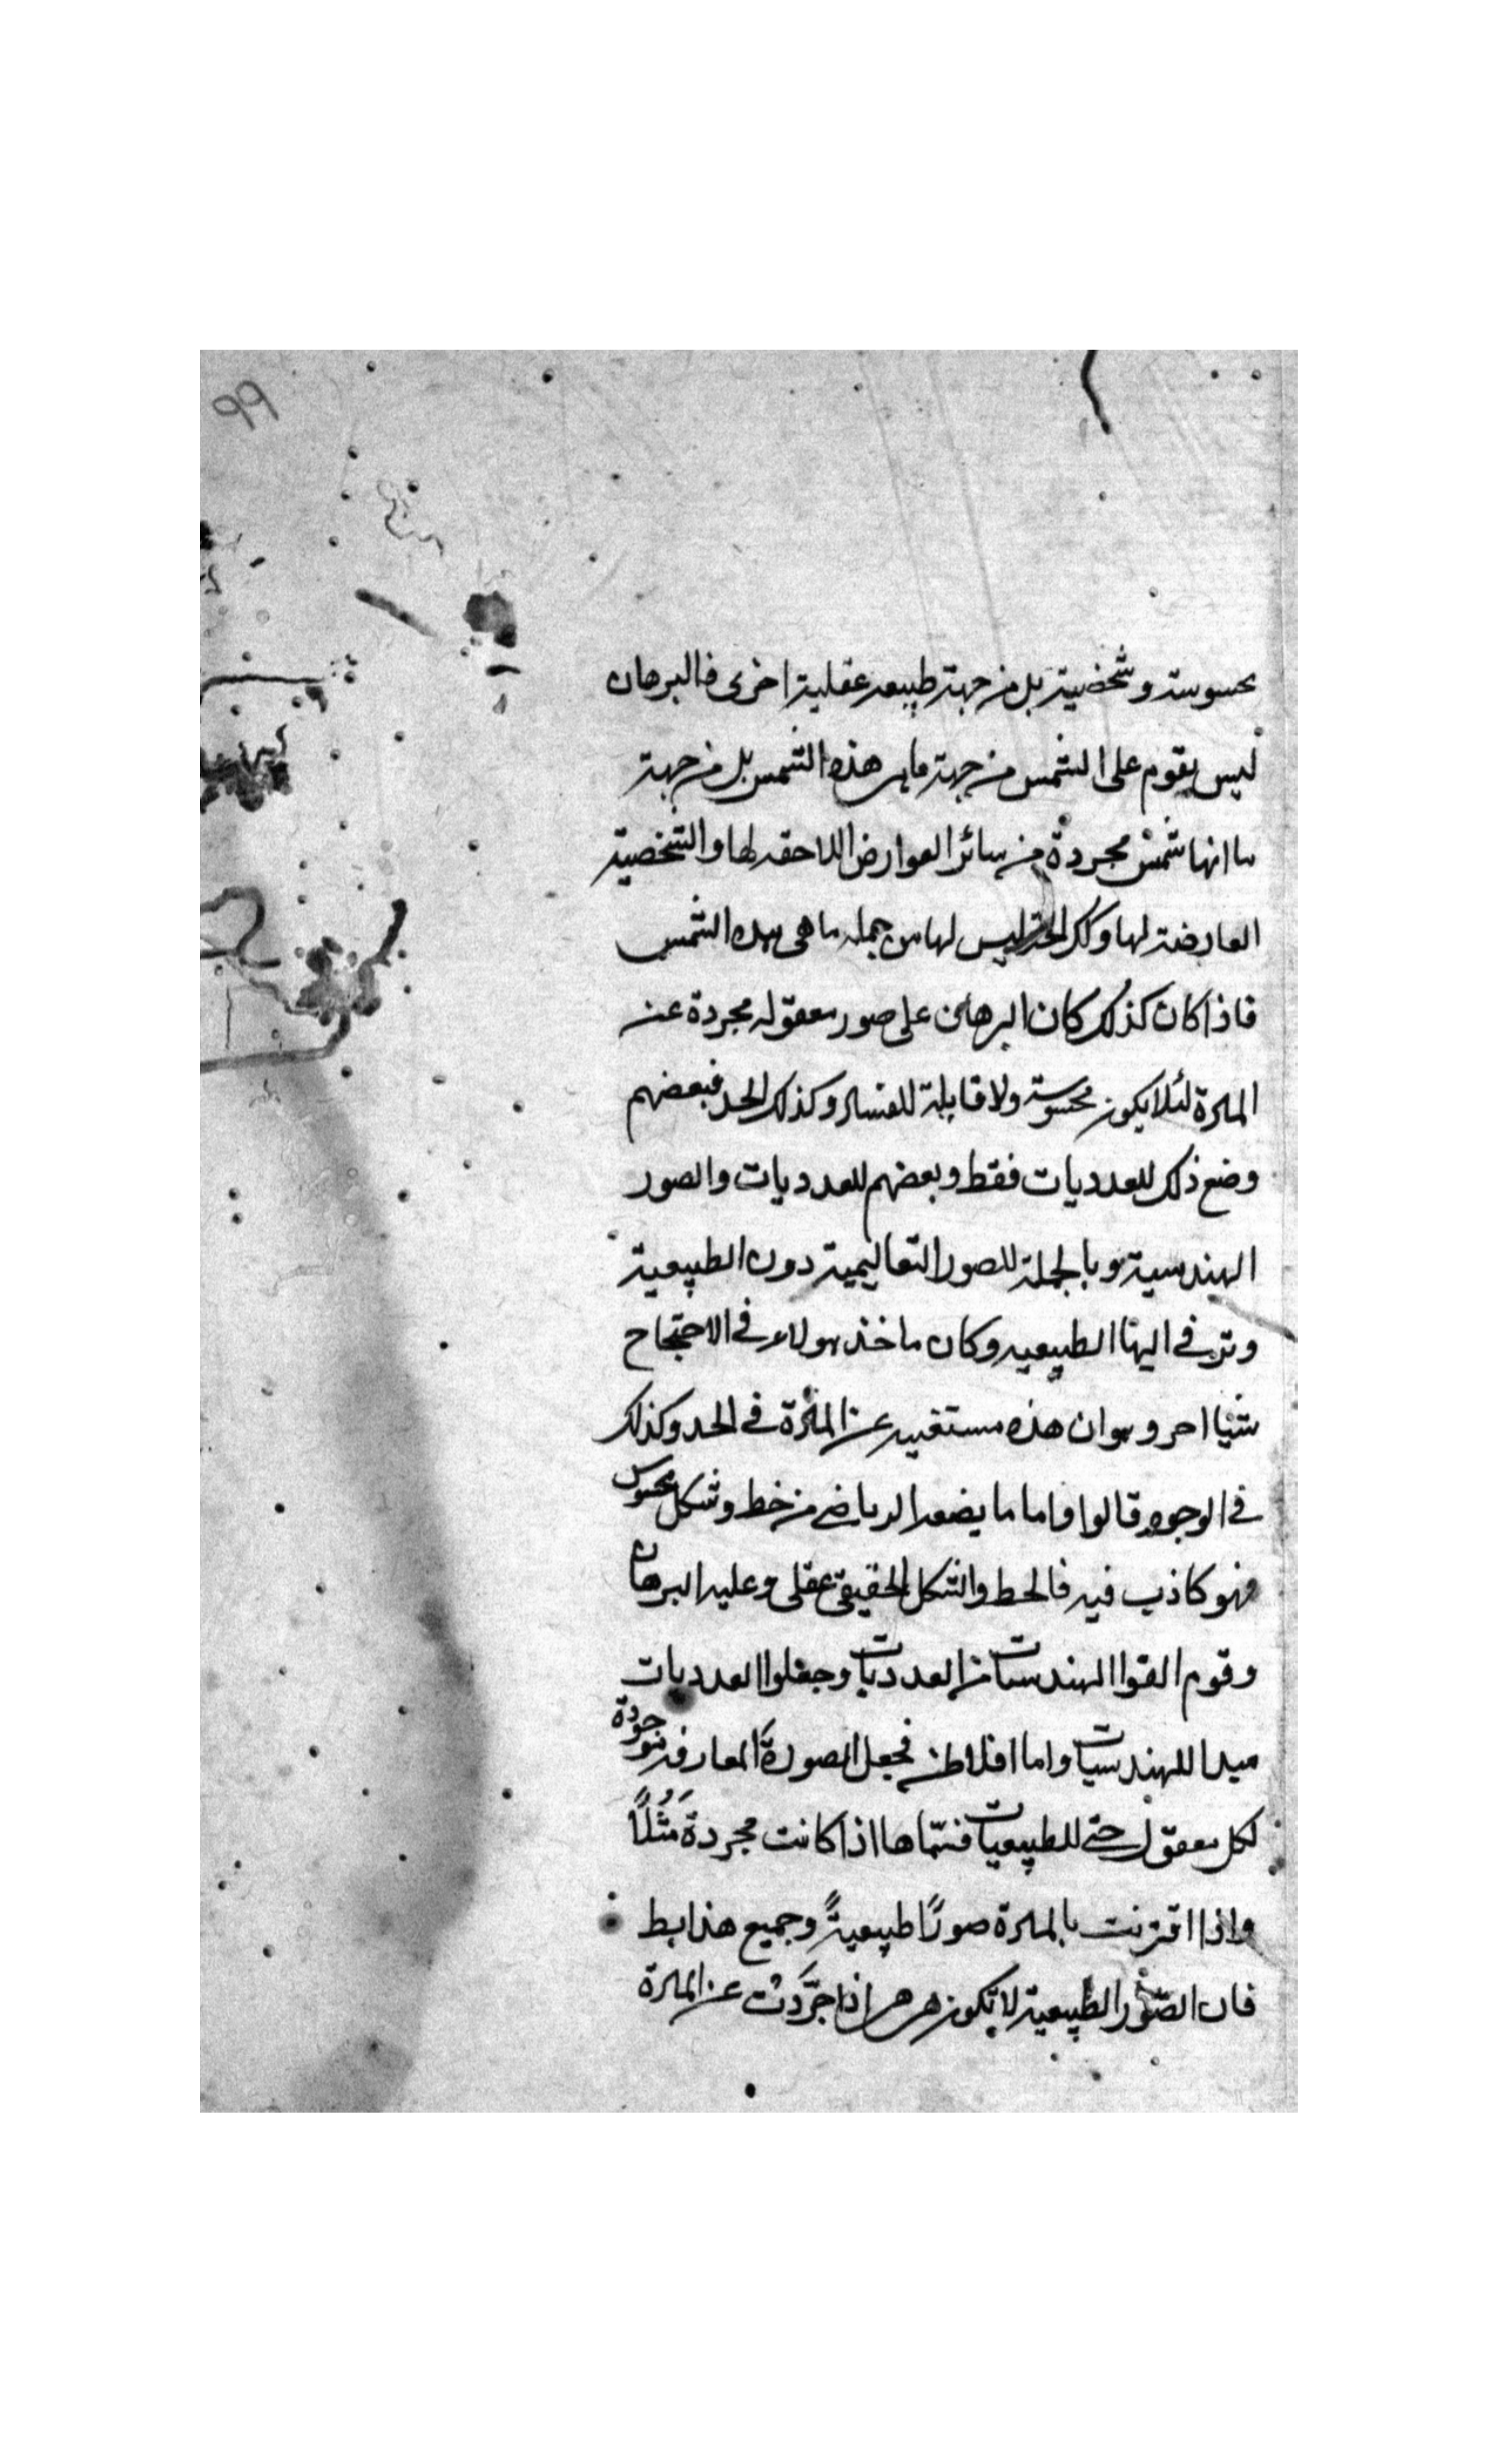 99
محسوسة وشخصية بل من جهة طبيعه عقلية اخرى فالبرهان
ليس يقوم على الشمس من جهة ماهى هذه الشمس بل من جهة
ما انها شمس مجردة من سائر العوارض اللاحقه لها والشخصية
العارضة لها وكك الحد ليس لها من جمله ما هى هذه الشمس
فاذا كان كذلك كان البرهان على صور معقوله مجردة عن
المادة لئلا يكون محسوسة ولا قابلة للفساد وكذلك الحد فبعضهم
وضع ذلك للعدديات فقط وبعضهم للعدديات والصور
الهندسية وبالجملة للصور التعاليمية دون الطبيعية
الطبيعيه وكان ماخذ هولاء فى الاحتجاج
شيئا اخر وهو ان هذه مستغنيه عن المادة فى الحد وكذلك
فى الوجود قالوا واما ما يضعه الرياضى من خط وشكل محسوس
فهو كاذب فيه فالخط والشكل الحقيقى عقلى وعليه البرهان
وقوم الفوا الهندسيات من العدديات وجعلوا العدديات
مبدا للهندسيات واما افلاطن فجعل الصورة المفارقه موجودة
لكل معقول حتى للطبيعيات فسمّاها اذا كانت مجردةً مُثُلًا
واذا اقترنت بالمادة صورًا طبيعيةً وجميع هذا بط
فان الصّور الطبيعية لا تكون هى هى اذا جرَّدَت عن المادة